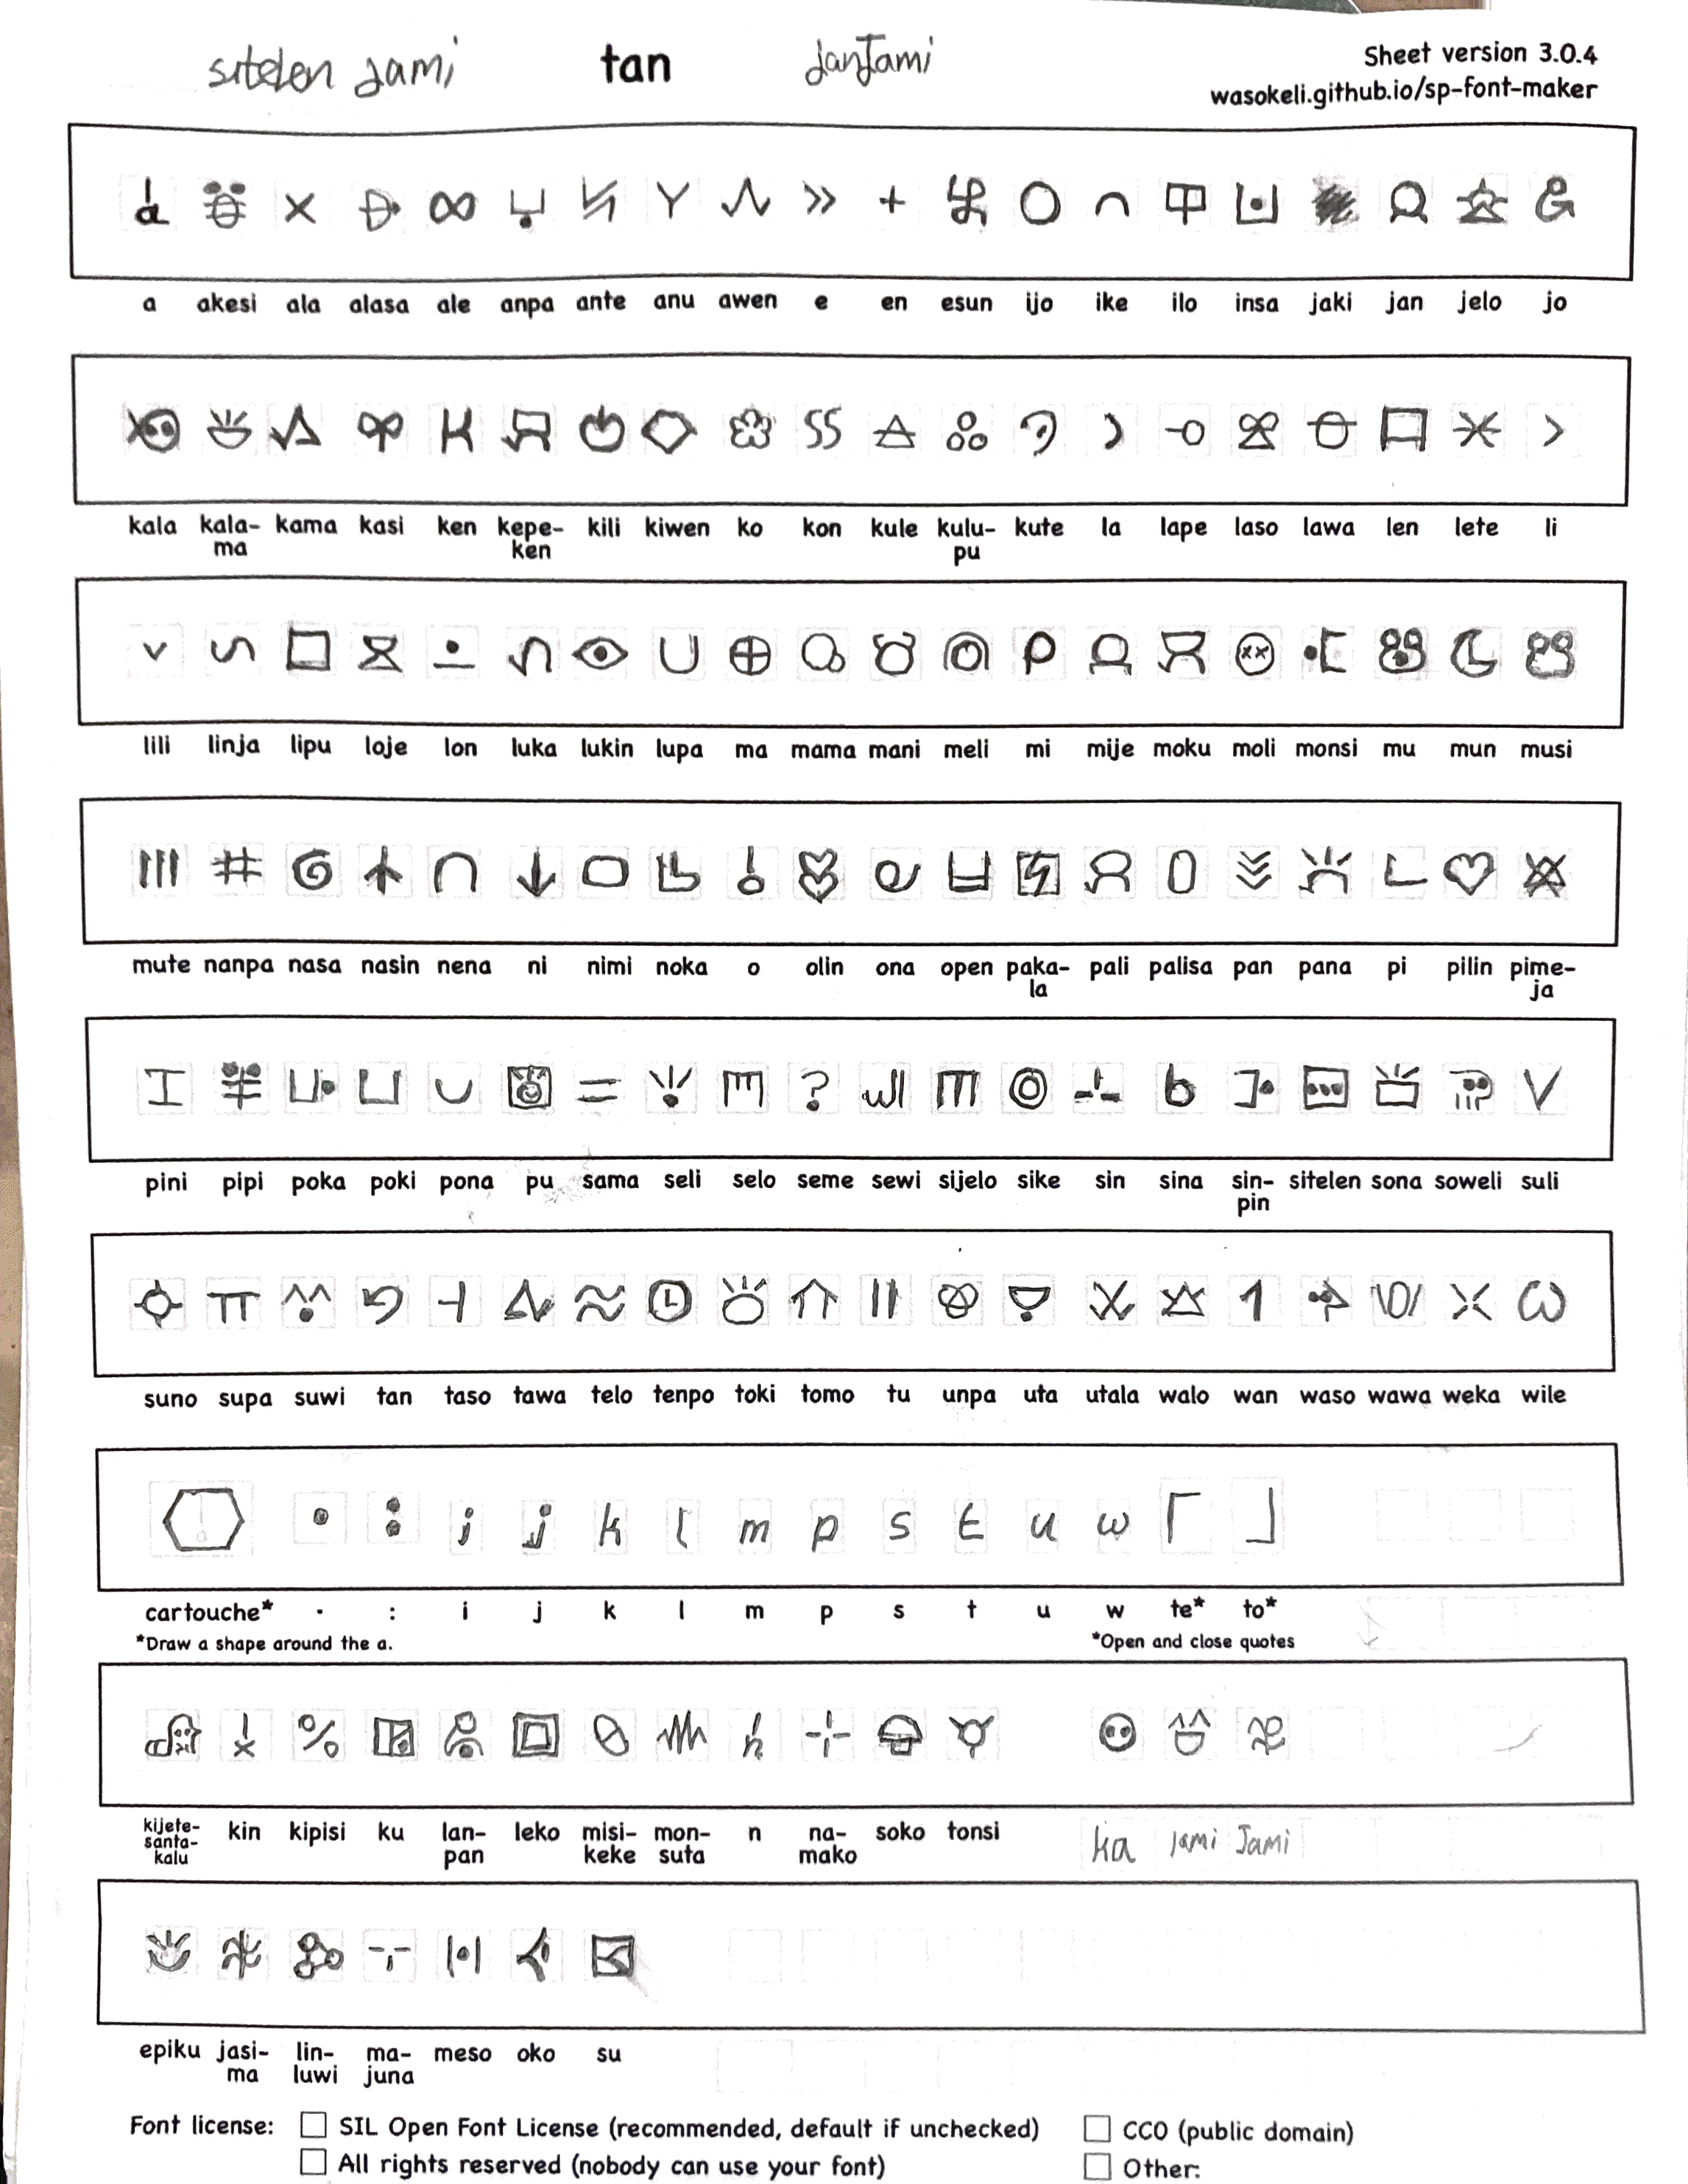 sitelen Jami tan jan Jami
Sheet version 3.0.4
wasokeli.github.io/sp-font-maker
a akesi ala alasa ale anpa ante anu awen e en esun ijo ike ilo insa jaki jan jelo jo
kala kala-ma kama kasi ken kepe-ken kili kiwen ko kon kule kulu-pu kute la lape laso lawa len lete li
lili linja lipu loje lon luka lukin lupa ma mama mani meli mi mije moku moli monsi mu mun musi
mute nanpa nasa nasin nena ni nimi noka o olin ona open paka-la pali palisa pan pana pi pilin pime-ja
pini pipi poka poki pona pu sama seli selo seme sewi sijelo sike sin sina sin-pin sitelen sona soweli suli
suno supa suwi tan taso tawa telo tenpo toki tomo tu unpa uta utala walo wan waso wawa weka wile
• : i j k l m p s t u w ┌ ┘
cartouche* · : i j k l m p s t u w te* to*
*Draw a shape around the a. *Open and close quotes
kijete-santa-kalu kin kipisi ku lan-pan leko misi-keke mon-suta n na-mako soko tonsi ka jami Jami
epiku jasi-ma lin-luwi ma-juna meso oko su
Font license: SIL Open Font License (recommended, default if unchecked) CC0 (public domain)
All rights reserved (nobody can use your font) Other: